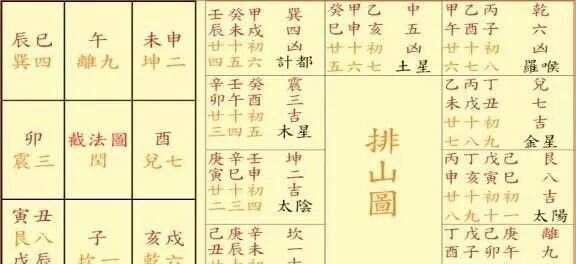 辰巳
巽四
午
離九
未申
坤二
卯
震三
截法圖
酉
兌七
寅丑
艮八
戊辰
子
坎一
亥戌
乾六
壬癸甲巽
辰未戌四
廿十初凶
四五六計都
癸甲乙中
巳申亥五
廿十初凶
五六七土星
甲乙丙乾
午酉子六
廿十初凶
六七八羅喉
辛壬癸震
卯午酉三
廿十初吉
三四五木星
排山圖
乙丙丁兌
未戌丑七
廿十初吉
七八九金星
庚辛壬坤
寅巳申二
廿十初吉
二三四太陰
丙丁戊己艮
申亥寅巳八
廿十初初吉
八九十一太陽
己庚辛坎
丑辰未一
丁戊己離
酉子卯九